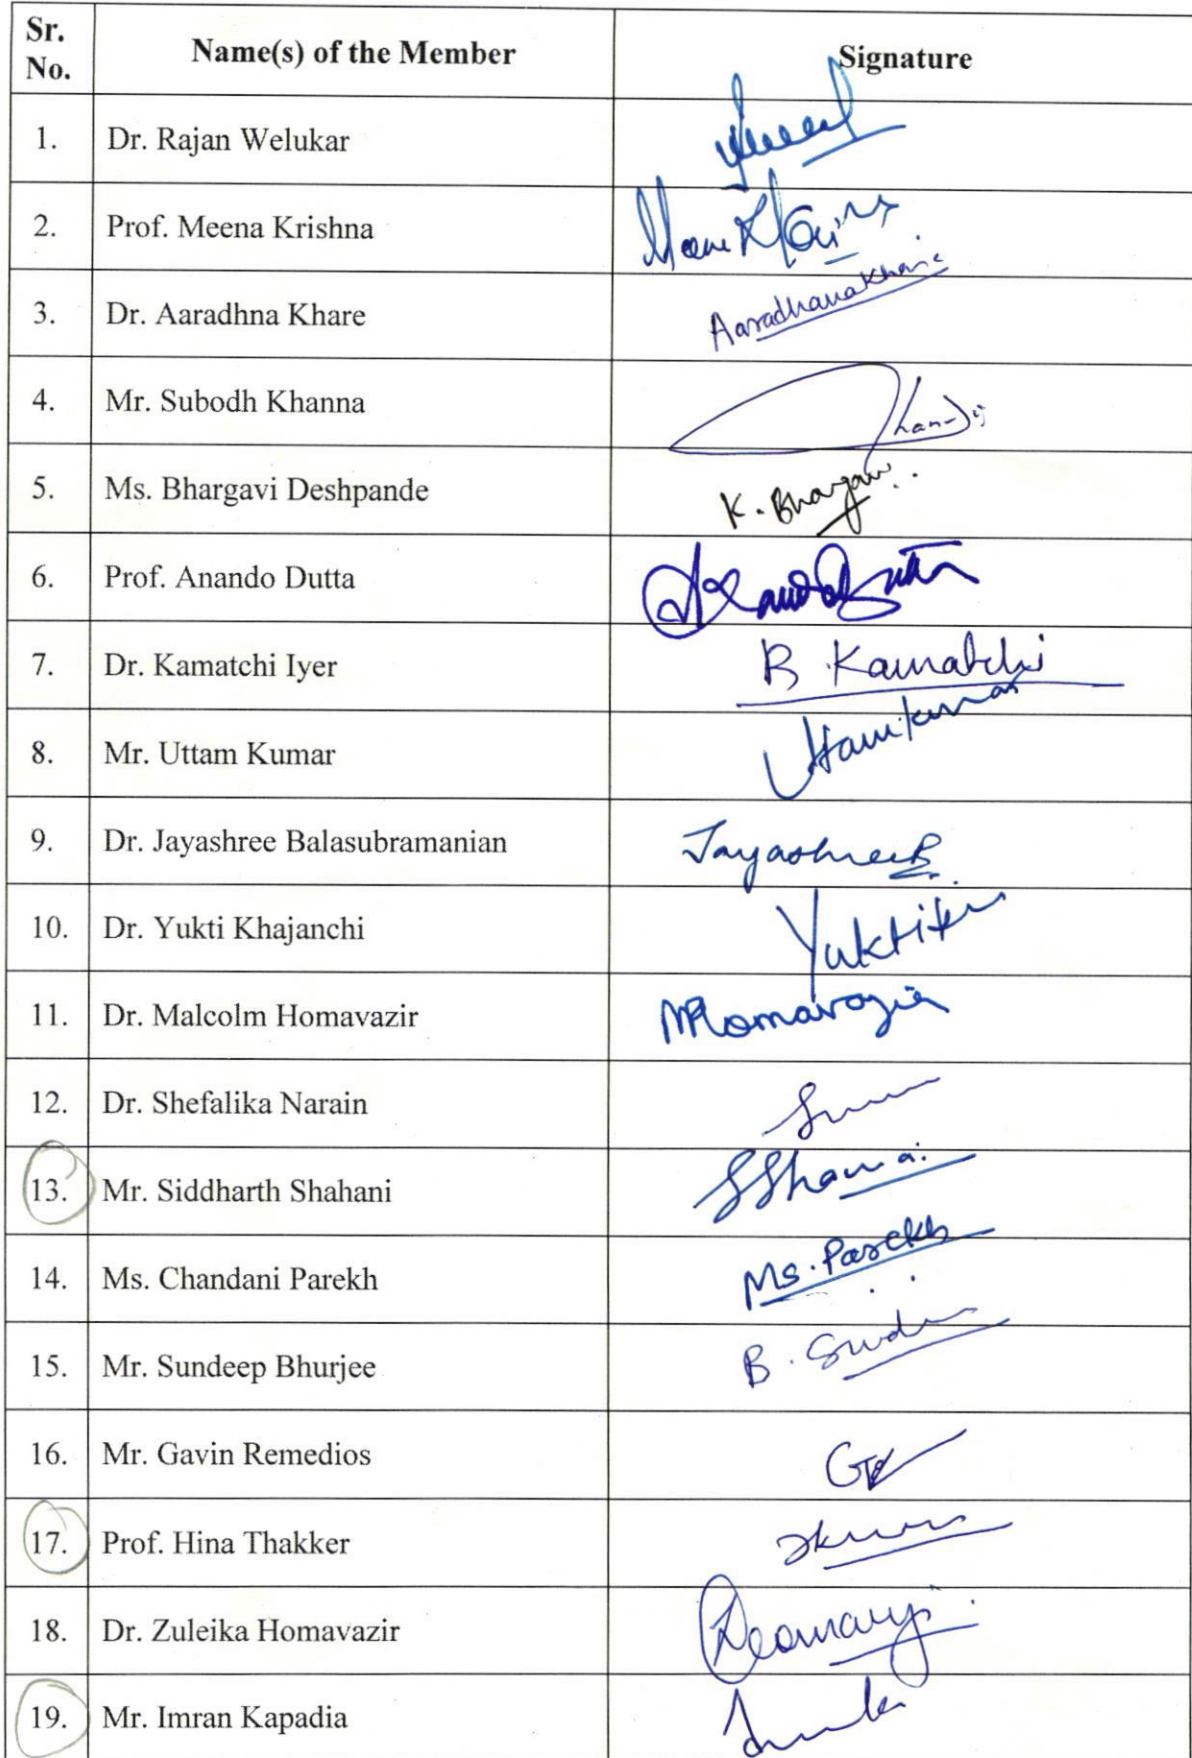 Sr. No. Name(s) of the Member Signature
1. Dr. Rajan Welukar
2. Prof. Meena Krishna
3. Dr. Aaradhna Khare Aaradhana Khare
4. Mr. Subodh Khanna
5. Ms. Bhargavi Deshpande K. Bhargavi
6. Prof. Anando Dutta
7. Dr. Kamatchi Iyer B. Kamatchi
8. Mr. Uttam Kumar
9. Dr. Jayashree Balasubramanian Jayashree B
10. Dr. Yukti Khajanchi
11. Dr. Malcolm Homavazir MHomavazir
12. Dr. Shefalika Narain
13. Mr. Siddharth Shahani
14. Ms. Chandani Parekh Ms. Parekh
15. Mr. Sundeep Bhurjee
16. Mr. Gavin Remedios
17. Prof. Hina Thakker
18. Dr. Zuleika Homavazir
19. Mr. Imran Kapadia